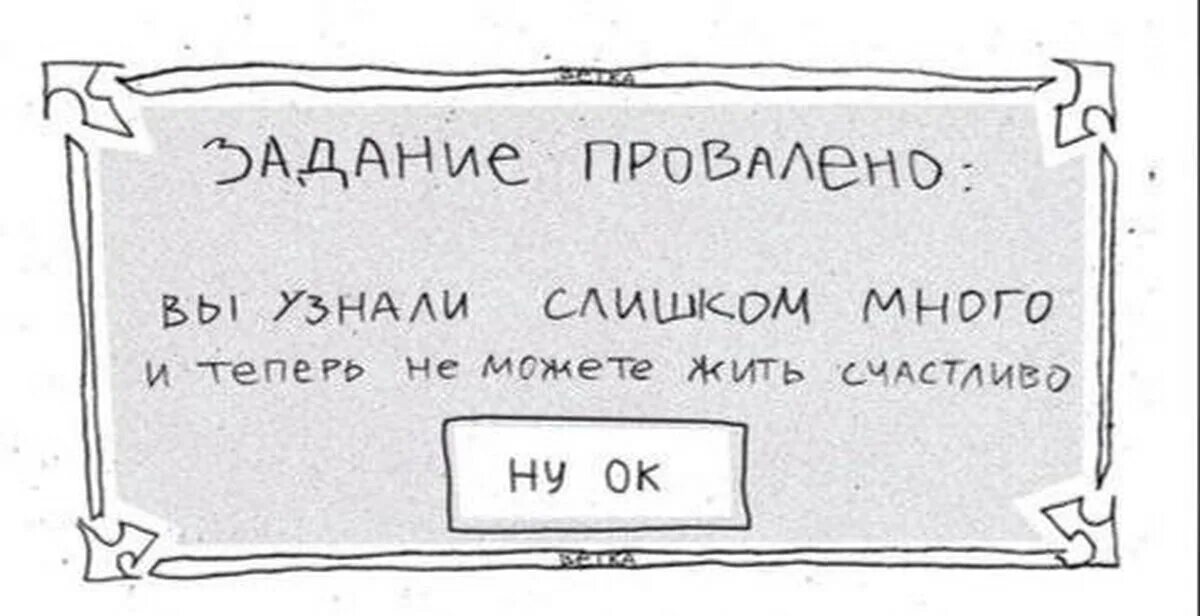 ВЕТКА
ЗАДАНИЕ ПРОВАЛЕНО:
ВЫ УЗНАЛИ СЛИШКОМ МНОГО
И ТЕПЕРЬ НЕ МОЖЕТЕ ЖИТЬ СЧАСТЛИВО
НУ ОК
ВЕТКА